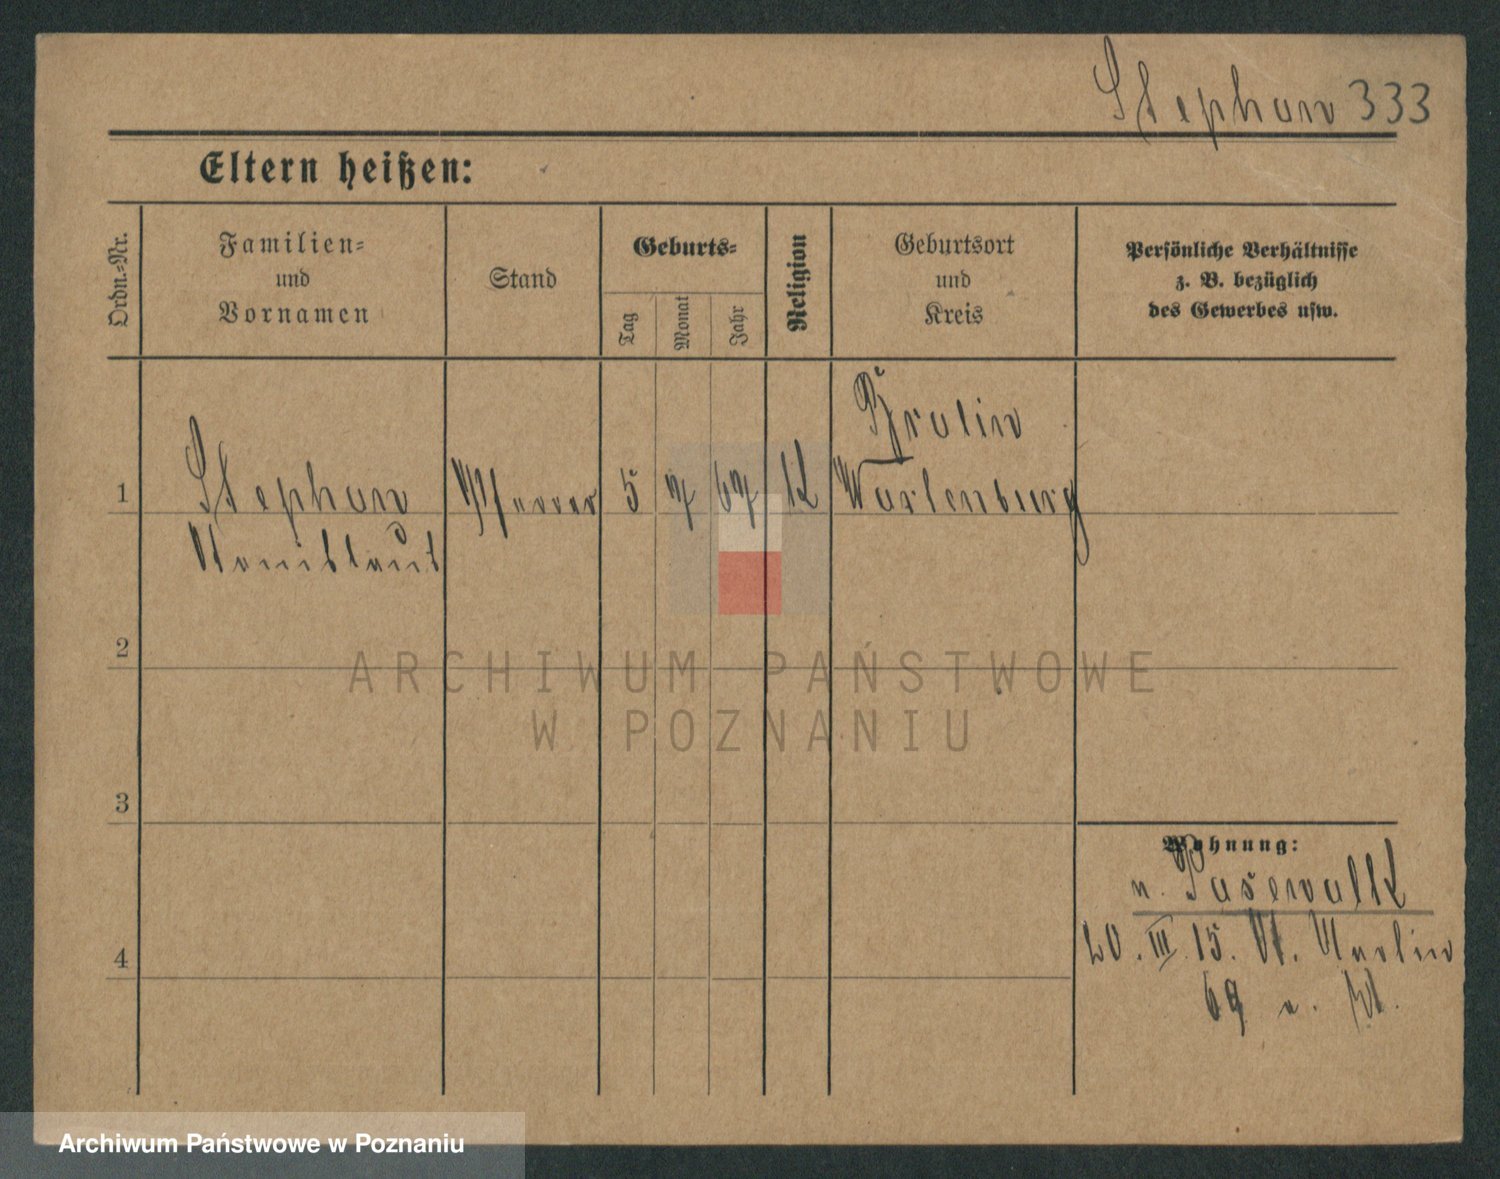 Stephan 333
Eltern heißen:
Ordn.=Nr.
Familien=
und
Vornamen
Stand
Geburts=
Tag
Monat
Jahr
Religion
Geburtsort
und
Kreis
Persönliche Verhältnisse
z. B. bezüglich
des Gewerbes usw.
1
Stephan
Stanislaus
Pfarrer
5
7
67
K
Wartenburg
2
3
4
Wohnung:
n. Pasewalk
20. III. 15. St. Martin
69
ARCHIWUM PAŃSTWOWE
W POZNANIU
Archiwum Państwowe w Poznaniu